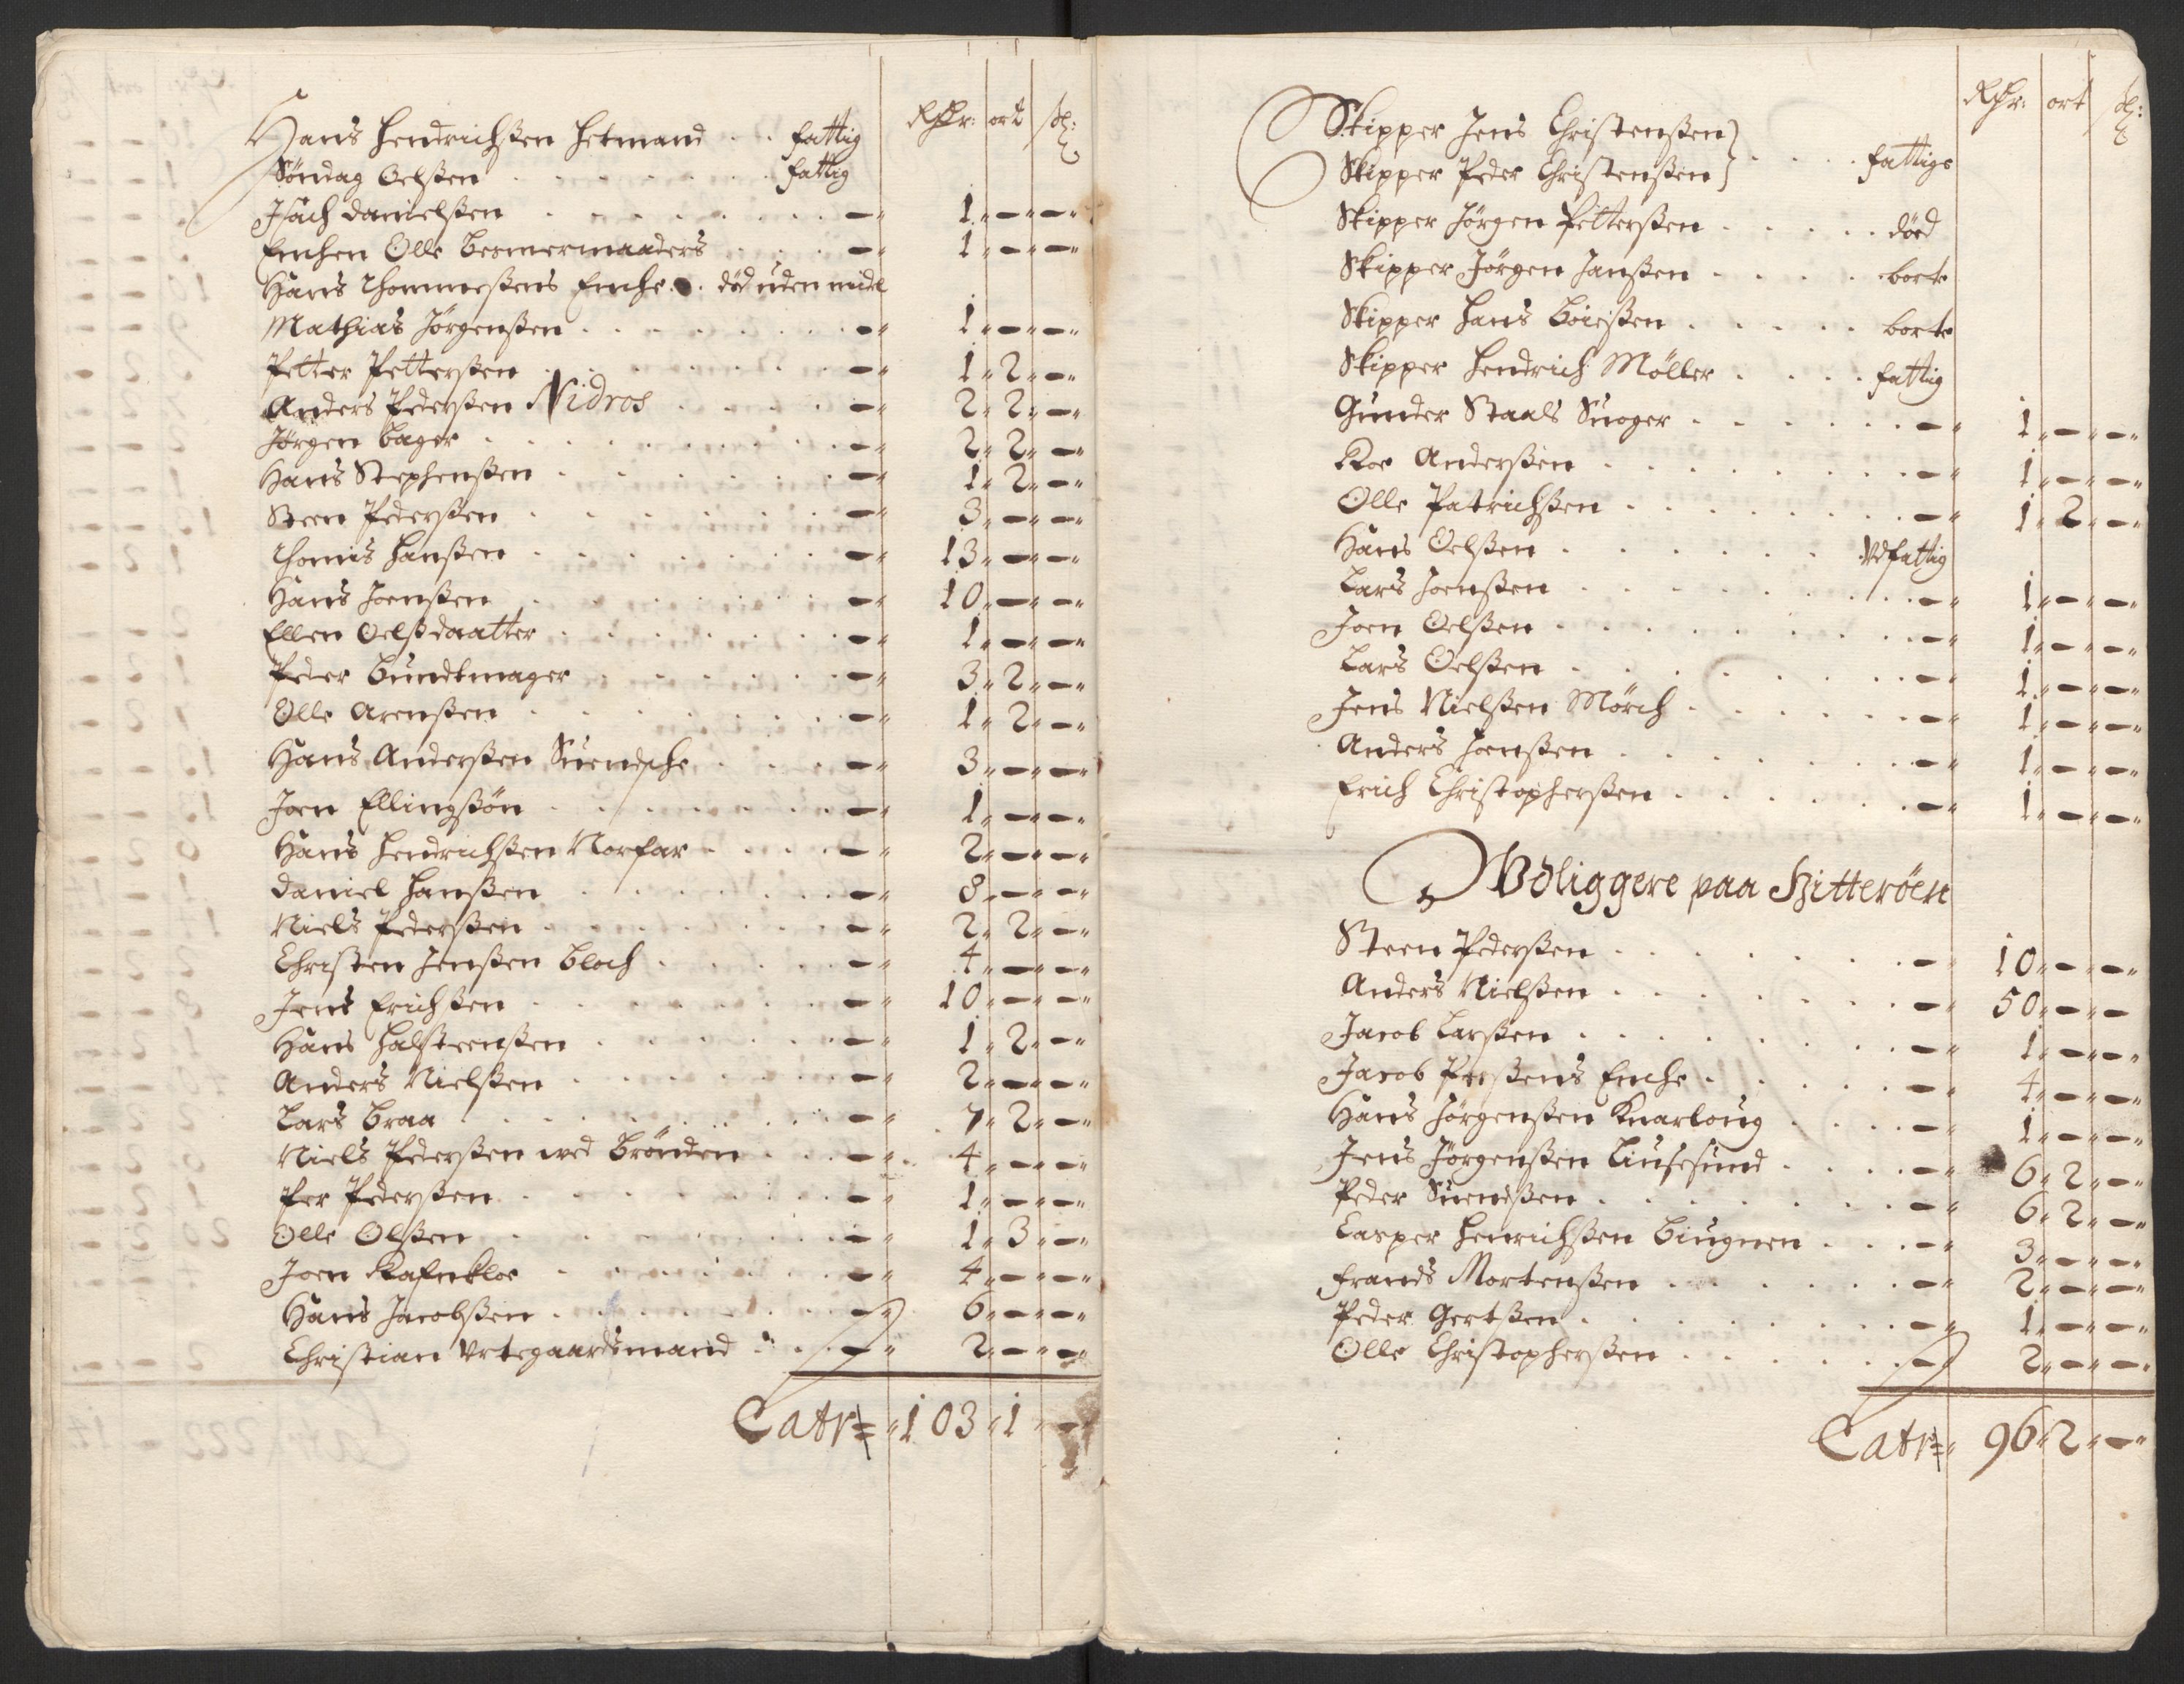 Rdr: ort sk:
Hans Hendrichßen Hetmand . . fattig
Söndag Oelßen . . . . fattig
Isach Danielßen . . . . — 1 „ — „ — „
Enchen Olle Besmermaaders . . . — 1 „ — „ — „
Hans Thommeßens Enche . . död uden midl
Mathias Jörgenßen . . . . — 1 „ — „ — „
Petter Petterßen . . . . — 1 „ 2 „ — „
Anders Pederßen Nidros . . . . — 2 „ 2 „ — „
Jörgen Bager . . . . — 2 „ 2 „ — „
Hans Stephenßen . . . . — 1 „ 2 „ — „
Steen Pederßen . . . . — 3 „ — „ — „
Thomis Hanßen . . . . — 13 „ — „ — „
Hans Joenßen . . . . — 10 „ — „ — „
Ellen Oelßdaatter . . . . — 1 „ — „ — „
Peder Bundtmager . . . . — 3 „ 2 „ — „
Olle Arenßen . . . . — 1 „ 2 „ — „
Hans Anderßen Suendsche . . . — 3 „ — „ — „
Joen Ellingßön . . . . — 1 „ — „ — „
Hans Hendrichßen Norfar . . . — 2 „ — „ — „
Daniel Hanßen . . . . — 8 „ — „ — „
Niels Pederßen . . . . — 2 „ 2 „ — „
Christen Jenßen Bloch . . . . — 4 „ — „ — „
Jens Erichßen . . . . — 10 „ — „ — „
Hans Halsteenßen . . . . — 1 „ 2 „ — „
Anders Nielßen . . . . — 2 „ — „ — „
Lars Braa . . . . — 7 „ 2 „ — „
Niels Pederßen ved Brönden . . . — 4 „ — „ — „
Per Pederßen . . . . — 1 „ — „ — „
Olle Olßen . . . . — 1 „ 3 „ — „
Joen Rafnkloe . . . . — 4 „ — „ — „
Hans Jacobßen . . . . — 6 „ — „ — „
Christian Urtegaardsmand . . . — 2 „ — „ — „
Latr= „ 103 „ 1 „ — „
Rdr: ort sk:
Skipper Jens Christenßen }
Skipper Peder Christenßen } . . . . fattige
Skipper Jörgen Petterßen . . . . döed
Skipper Jörgen Janßen . . . . borte
Skipper Hans Böießen . . . . borte
Skipper Hendrich Möller . . . . fattig
Gunder Staals Suoger . . . . — 1 „ — „ — „
Roe Anderßen . . . . — 1 „ — „ — „
Olle Patrichßen . . . . — 1 „ 2 „ — „
Hans Oelßen . . . . Udfattig
Lars Joenßen . . . . — 1 „ — „ — „
Joen Oelßen . . . . — 1 „ — „ — „
Lars Oelßen . . . . — 1 „ — „ — „
Jens Nielßen Mörch . . . . — 1 „ — „ — „
Anders Joenßen . . . . — 1 „ — „ — „
Erich Christopherßen . . . . — 1 „ — „ — „
Udliggere paa Hitteröen
Steen Pederßen . . . . — 10 „ — „ — „
Anders Nielßen . . . . — 50 „ — „ —
Jacob Larßen . . . . — 1 „ — „ — „
Jacob Peerßens Enche . . . . — 4 „ — „ — „
Hans Jörgenßen Knarloug . . . . — 1 „ — „ — „
Jens Jörgenßen Liusesund . . . . — 6 „ 2 „ — „
Peder Suendßen . . . . — 6 „ 2 „ — „
Casper Henrichßen Biugnen . . . — 3 „ — „ — „
Frands Mortenßen . . . . — 2 „ — „ — „
Peder Gertßen . . . . — 1 „ — „ — „
Olle Christopherßen . . . . — 2 „ — „ — „
Latr= „ 96 „ 2 „ — „